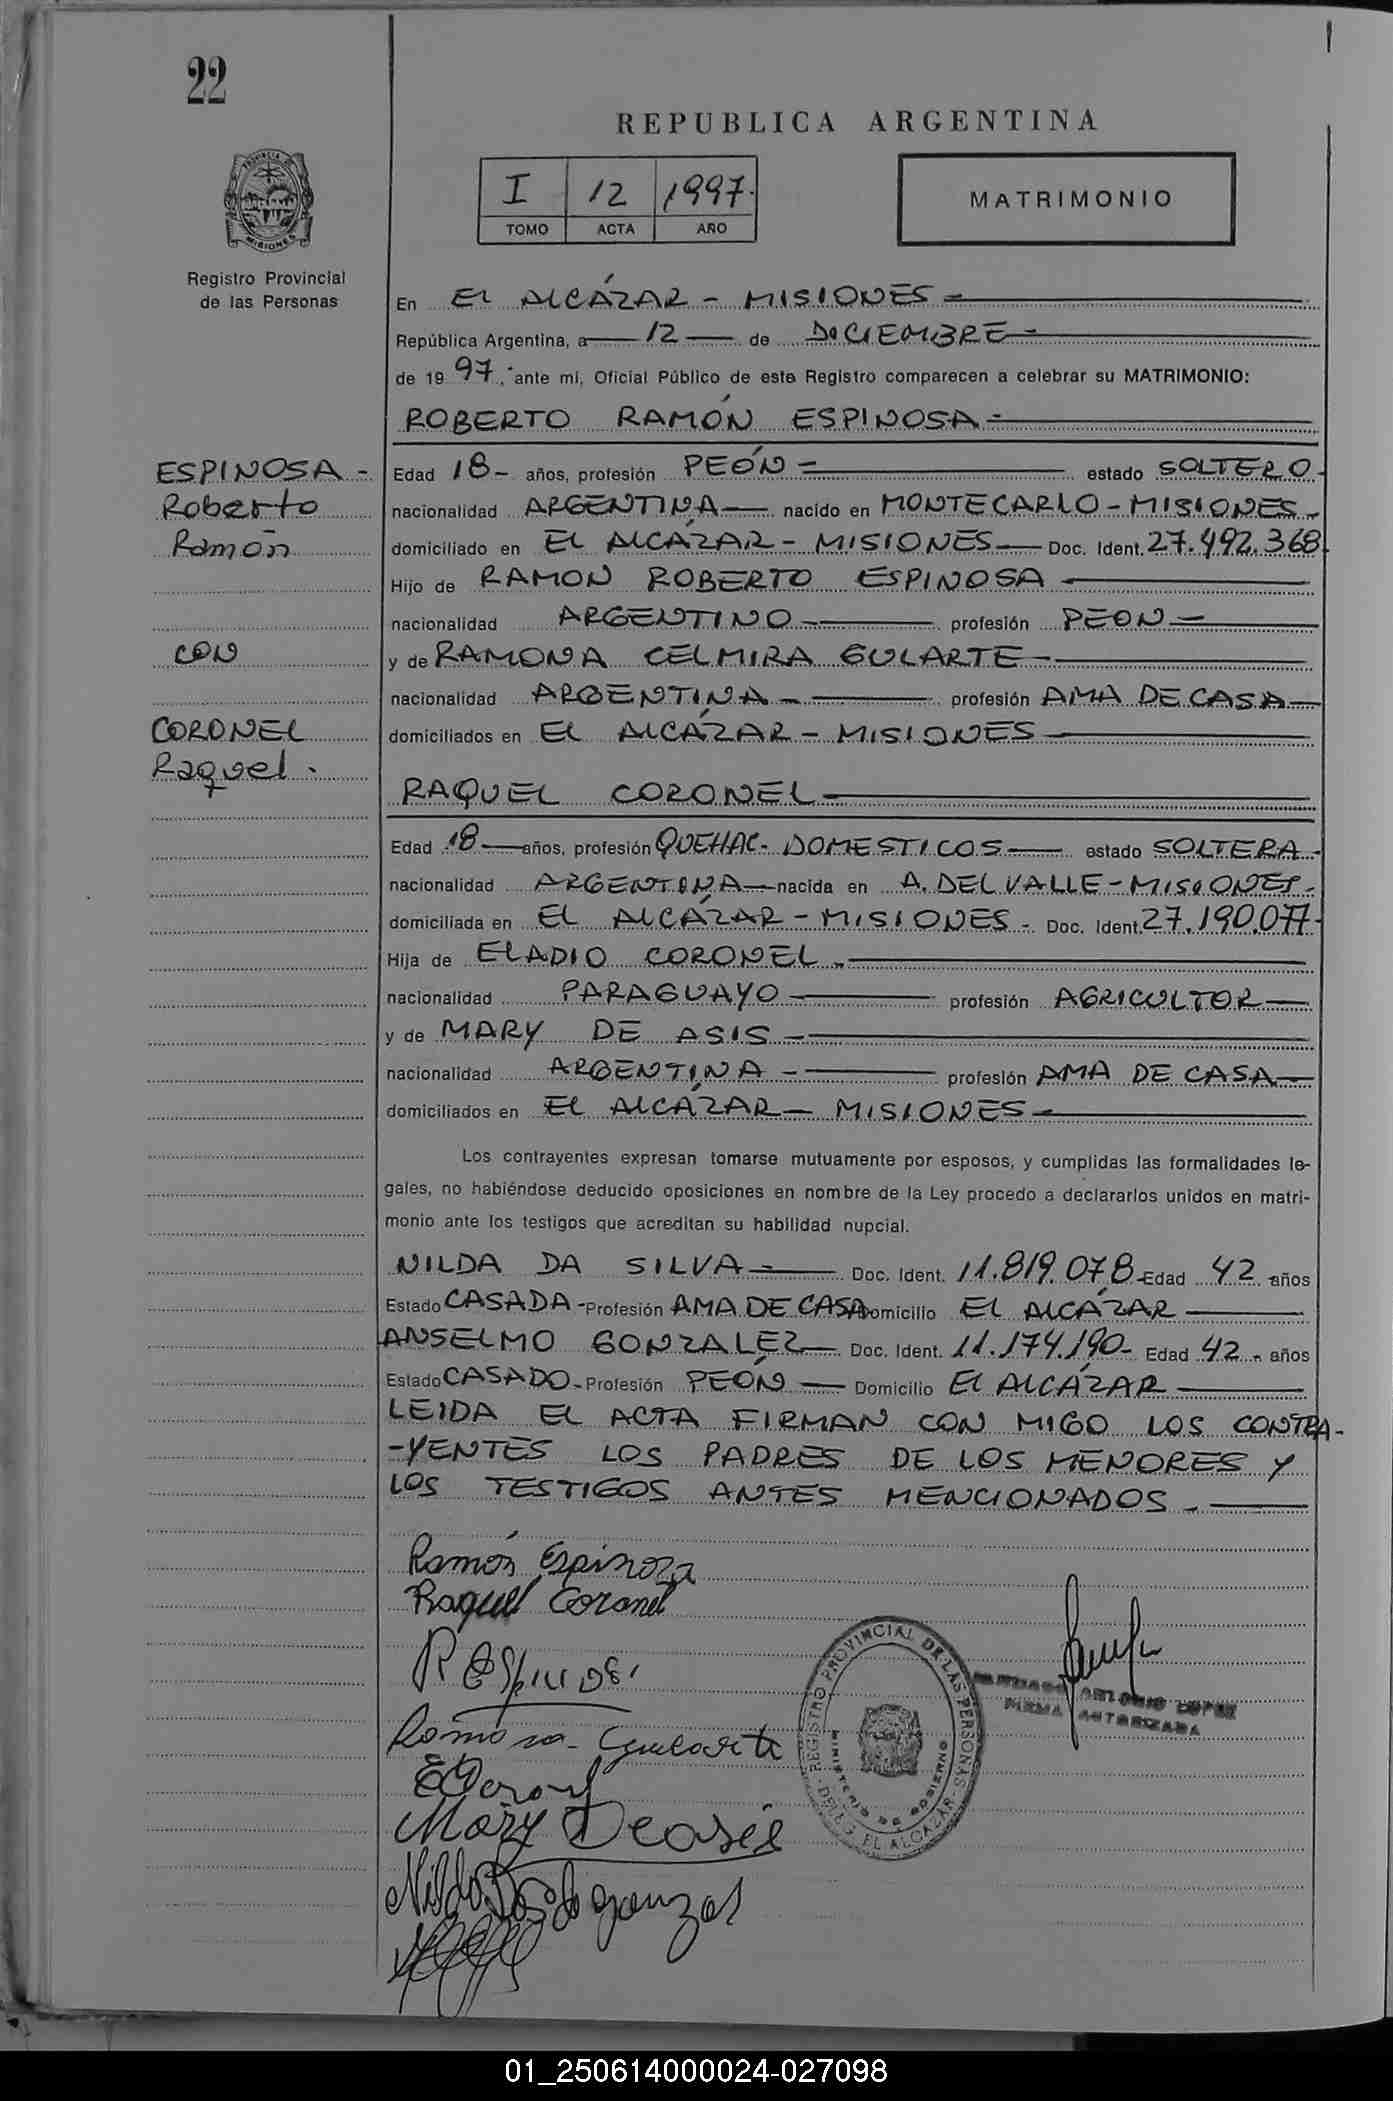 22
REPUBLICA ARGENTINA
I 12 1997.
TOMO ACTA AÑO
MATRIMONIO
PROVINCIA DE
MISIONES
Registro Provincial
de las Personas
En EL ALCÁZAR - MISIONES -
República Argentina, a 12 de DICIEMBRE -
de 19 97, ante mi, Oficial Público de este Registro comparecen a celebrar su MATRIMONIO:
ROBERTO RAMÓN ESPINOSA -
ESPINOSA -
Roberto
Ramón
con
CORONEL
Raquel.
Edad 18 - años, profesión PEÓN - estado SOLTERO -
nacionalidad ARGENTINA nacido en MONTECARLO - MISIONES -
domiciliado en EL ALCÁZAR - MISIONES Doc. Ident. 27.492.368
Hijo de RAMON ROBERTO ESPINOSA
nacionalidad ARGENTINO - profesión PEON -
y de RAMONA CELMIRA GULARTE -
nacionalidad ARGENTINA - profesión AMA DE CASA
domiciliados en EL ALCÁZAR - MISIONES
RAQUEL CORONEL
Edad 18 años, profesión QUEHAC. DOMESTICOS estado SOLTERA -
nacionalidad ARGENTINA nacida en A. DEL VALLE - MISIONES -
domiciliada en EL ALCÁZAR - MISIONES - Doc. Ident. 27.190.077 -
Hija de ELADIO CORONEL -
nacionalidad PARAGUAYO profesión AGRICULTOR
y de MARY DE ASIS -
nacionalidad ARGENTINA - profesión AMA DE CASA
domiciliados en EL ALCÁZAR - MISIONES -
Los contrayentes expresan tomarse mutuamente por esposos, y cumplidas las formalidades le-
gales, no habiéndose deducido oposiciones en nombre de la Ley procedo a declararlos unidos en matri-
monio ante los testigos que acreditan su habilidad nupcial.
NILDA DA SILVA - Doc. Ident. 11.819.078 - Edad 42 años
Estado CASADA - Profesión AMA DE CASA Domicilio EL ALCÁZAR
ANSELMO GONZALEZ Doc. Ident. 11.174.190 - Edad 42 - años
Estado CASADO - Profesión PEÓN Domicilio EL ALCÁZAR
LEIDA EL ACTA FIRMAN CON MIGO LOS CONTRA-
-YENTES LOS PADRES DE LOS MENORES Y
LOS TESTIGOS ANTES MENCIONADOS -
Ramón Espinoza
Raquel Coronel
Mary Deasis
REGISTRO PROVINCIAL DE LAS PERSONAS
MINISTERIO DE GOBIERNO
DELEG. EL ALCAZAR
ANTONIO LOPEZ
FIRMA AUTORIZADA
01_250614000024-027098